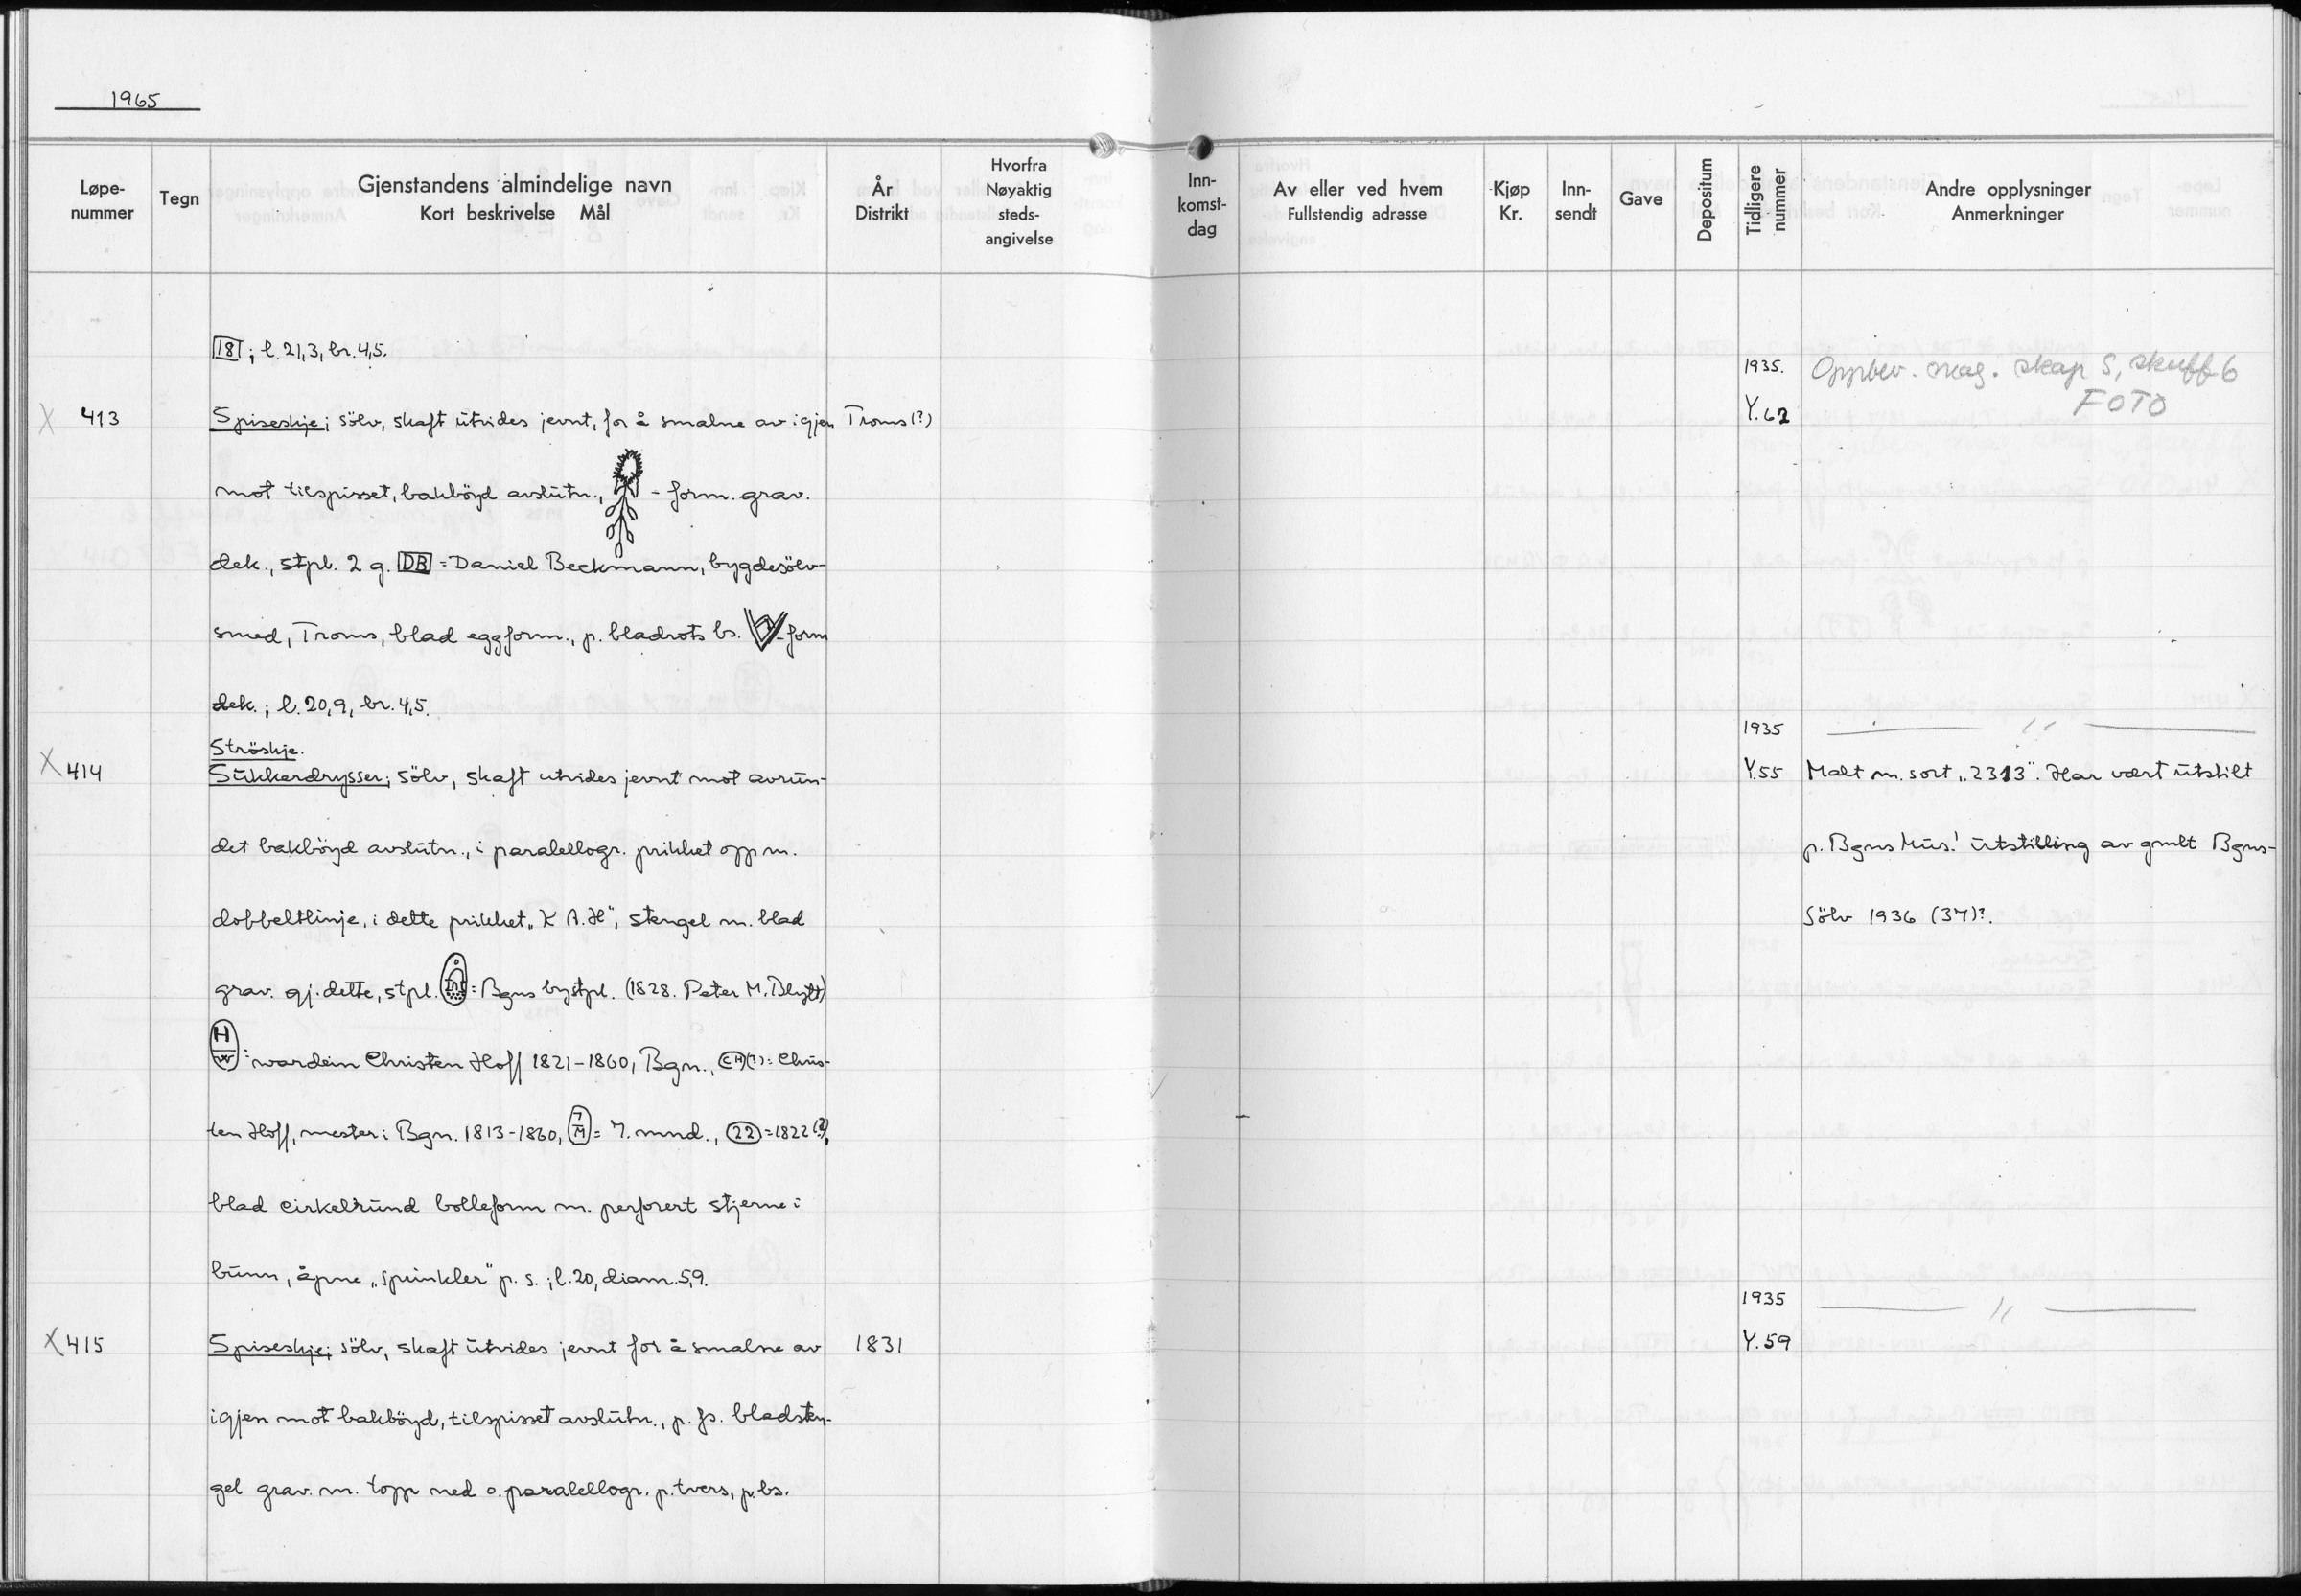 1965
Løpe-
nummer
Tegn
Gjenstandens almindelige navn
Kort beskrivelse Mål
År
Distrikt
Hvorfra
Nøyaktig
steds-
angivelse
Inn-
komst-
dag
Av eller ved hvem
Fullstendig adresse
Kjøp
Kr.
Inn-
sendt
Gave
Depositum
Tidligere
nummer
Andre opplysninger
Anmerkninger
18; l. 21,3, br. 4,5.
X 413 Spiseskje; sölv, skaft utvides jevnt, for å smalne av igjen Troms (?)
mot tilspisset, bakböyd avslutn., - form. grav.
dek., stpl. 2 g. DB = Daniel Beckmann, bygdesölv-
smed, Troms, blad eggform., p. bladrots bs. - form
dek.; l. 20,9, br. 4,5.
Ströskje.
X 414 Sukkerdrysser; sölv, skaft utvides jevnt mot avrun-
det bakböyd avslutn., i paralellogr. prikket opp m.
dobbeltlinje, i dette prikket „K A. H", stengel m. blad
grav. gj. dette, stpl. : Bgns bystpl. (1828. Peter M. Blytt)
H W : wardein Christen Hoff 1821-1860, Bgn., CH (?): Chris-
ten Hoff, mester i Bgn. 1813-1860, 7 M = 7. mnd., 22 = 1822 (?),
blad cirkelrund bolleform m. perforert stjerne i
bunn, åpne „sprinkler" p. s.; l. 20, diam. 5,9.
X 415 Spiseskje; sölv, skaft utvides jevnt for å smalne av 1831
igjen mot bakböyd, tilspisset avslutn., p. fs. bladsten-
gel grav. m. topp ned o. paralellogr. p. tvers, p. bs.
1935. Oppbev. mag. skap S, skuff 6
FOTO
Y. 62
1935 — " —
Y. 55 Malt m. sort „2313". Har vært utstilt
p. Bgns Mus.' utstilling av gmlt Bgns-
sölv 1936 (37)?.
1935 — " —
Y. 59